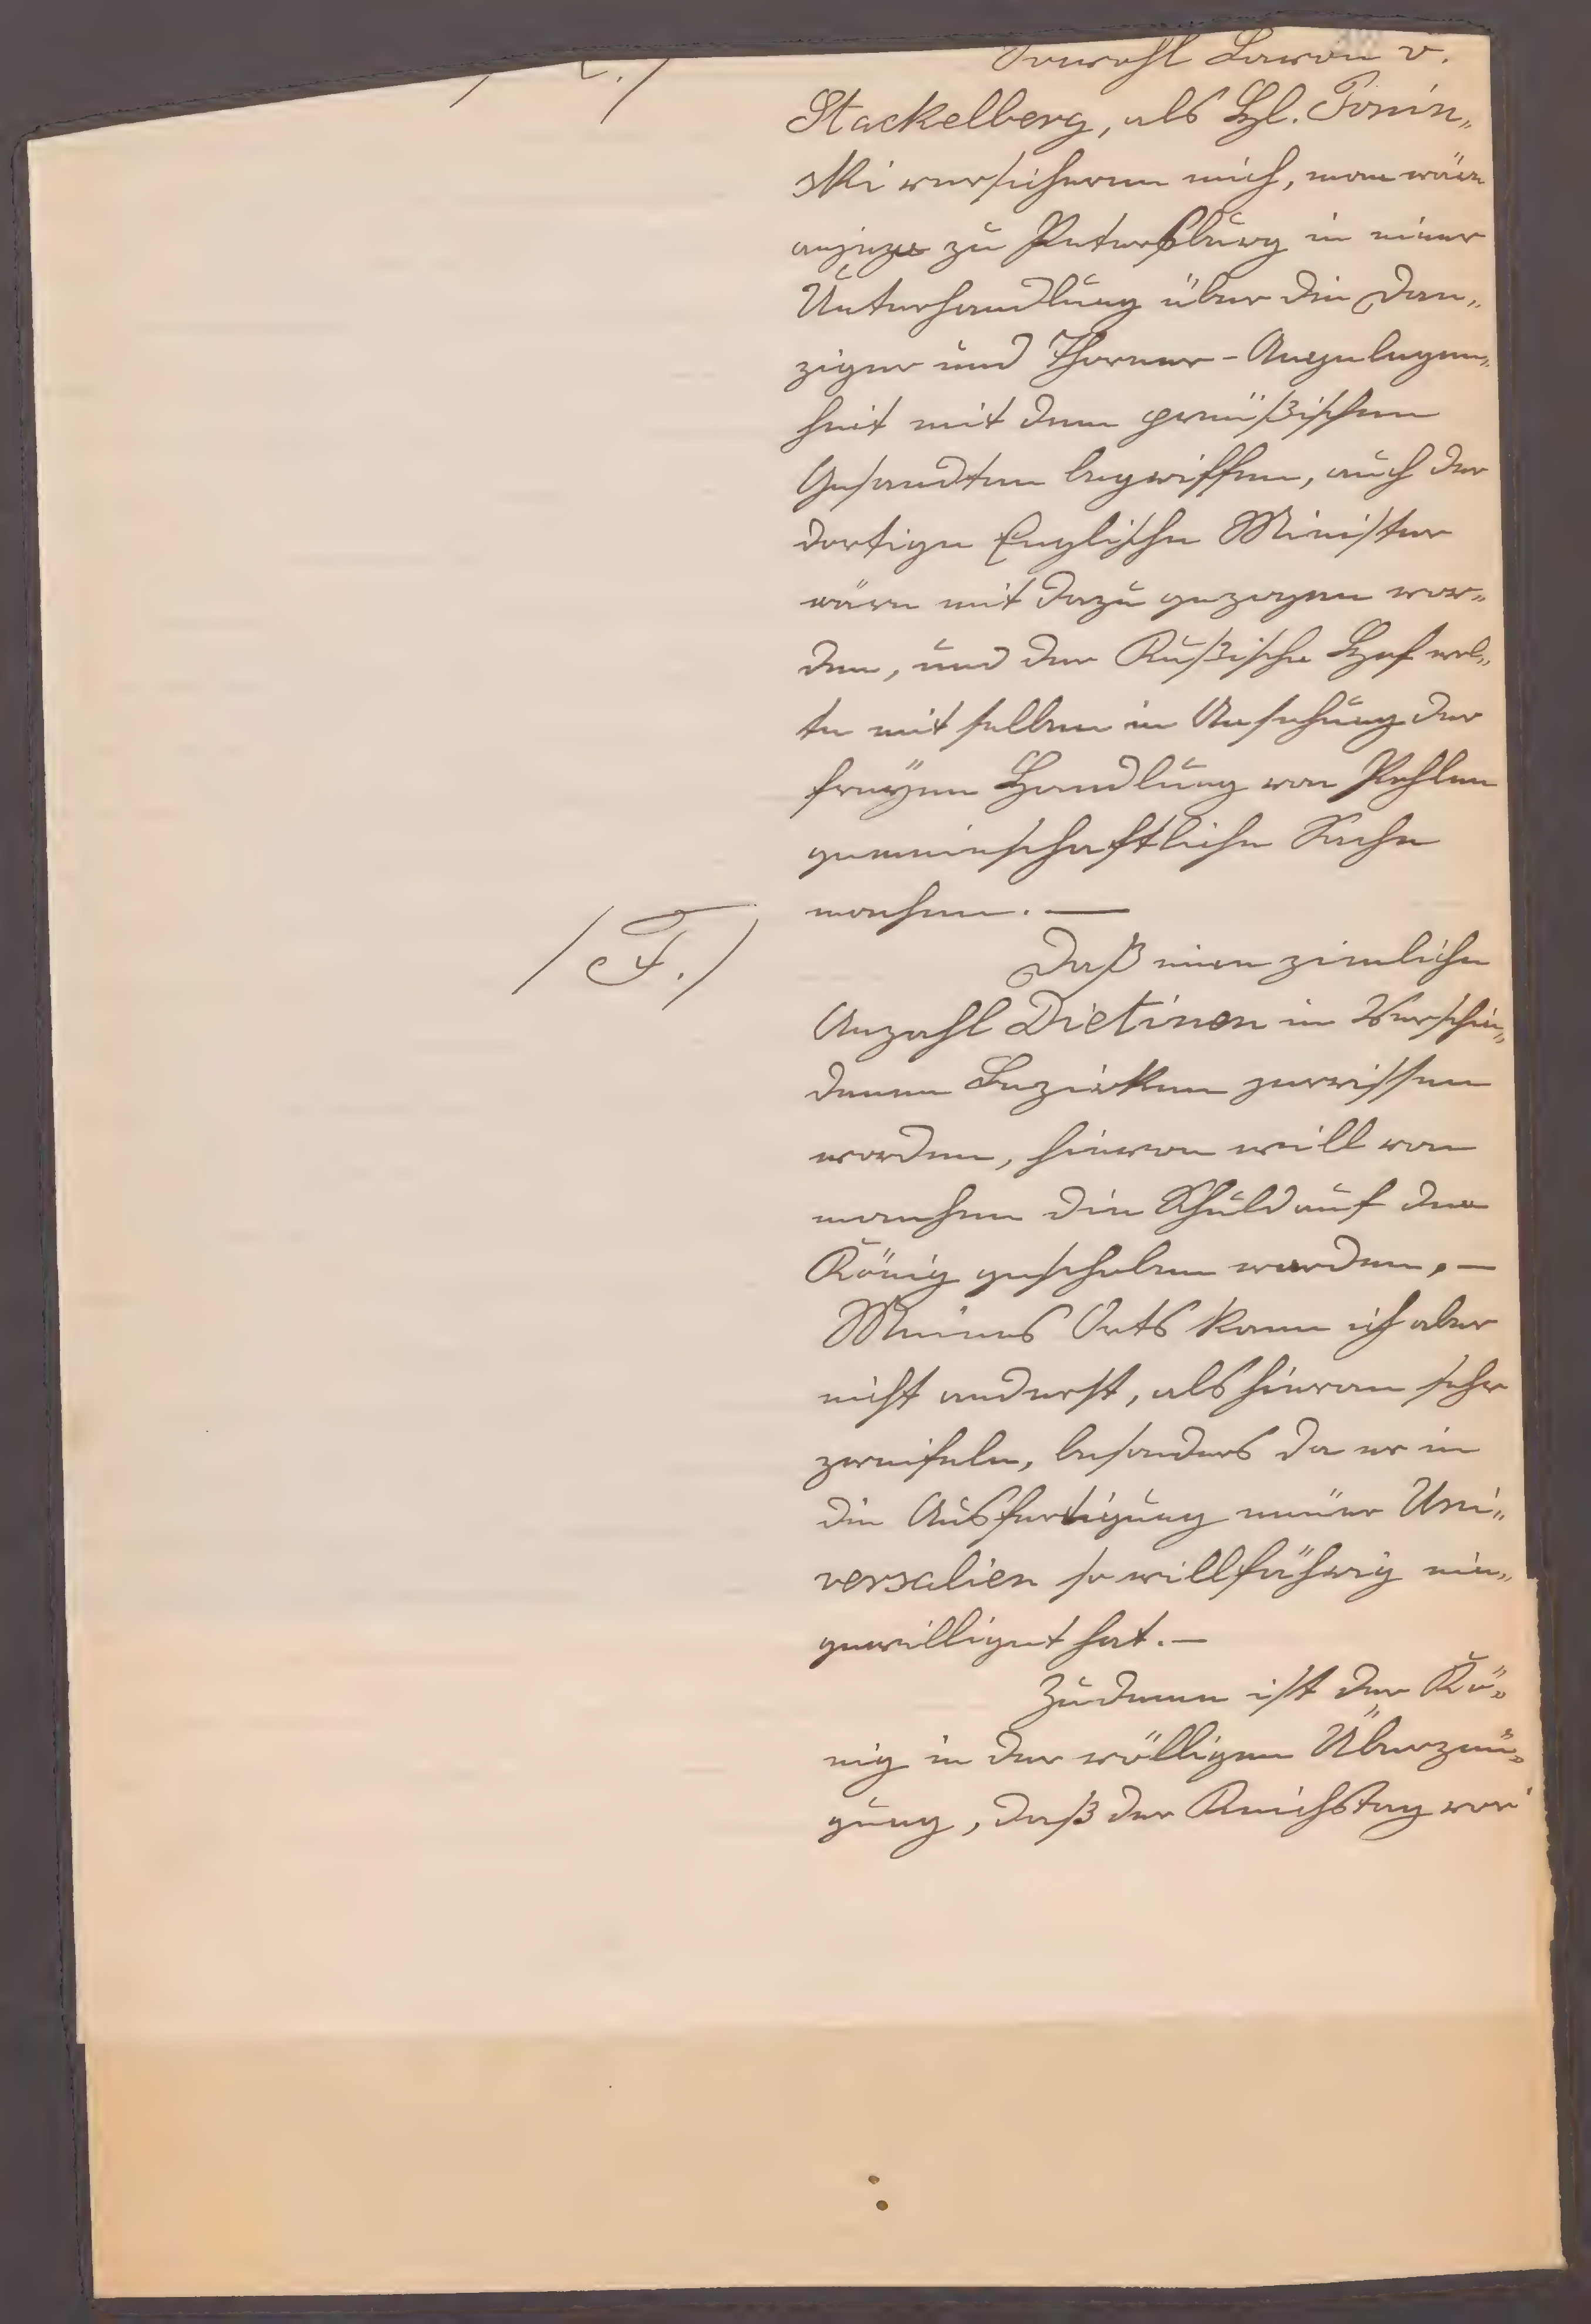 Sowohl Baron v.
Stackelberg, als H. Ponin„
ski versicheren mich, man wäre
anjezo zu Petersburg in einer
Unterhandlung über die Dan„
ziger und Thorner-Angelegen„
heit mit dem preüßischen
Gesandten begriffen, auch der
dortige Englische Minister
wäre mit dazu gezogen wor„
den, und der Rußische Hof wol„
te mit selben in Ansehung der
freÿen Handlung von Pohlen
gemeinschaftliche Sache
machen. —
/F./
Daß eine zimliche
Anzahl Dietinen in Verschie„
denen Bezirken zerrissen
worden, hievon will von
manchen die Schuld auf den
König geschoben werden, —
Meines Orts kann ich aber
nicht anderst, als hieran sehr
zweifeln, besonders da er in
die Ausfertigung neüer Uni„
versalien so willfährig ein„
gewilliget hat. —
Zudeme ist der Kö„
nig in der völligen Überzeü„
gung, daß der Reichstag vor